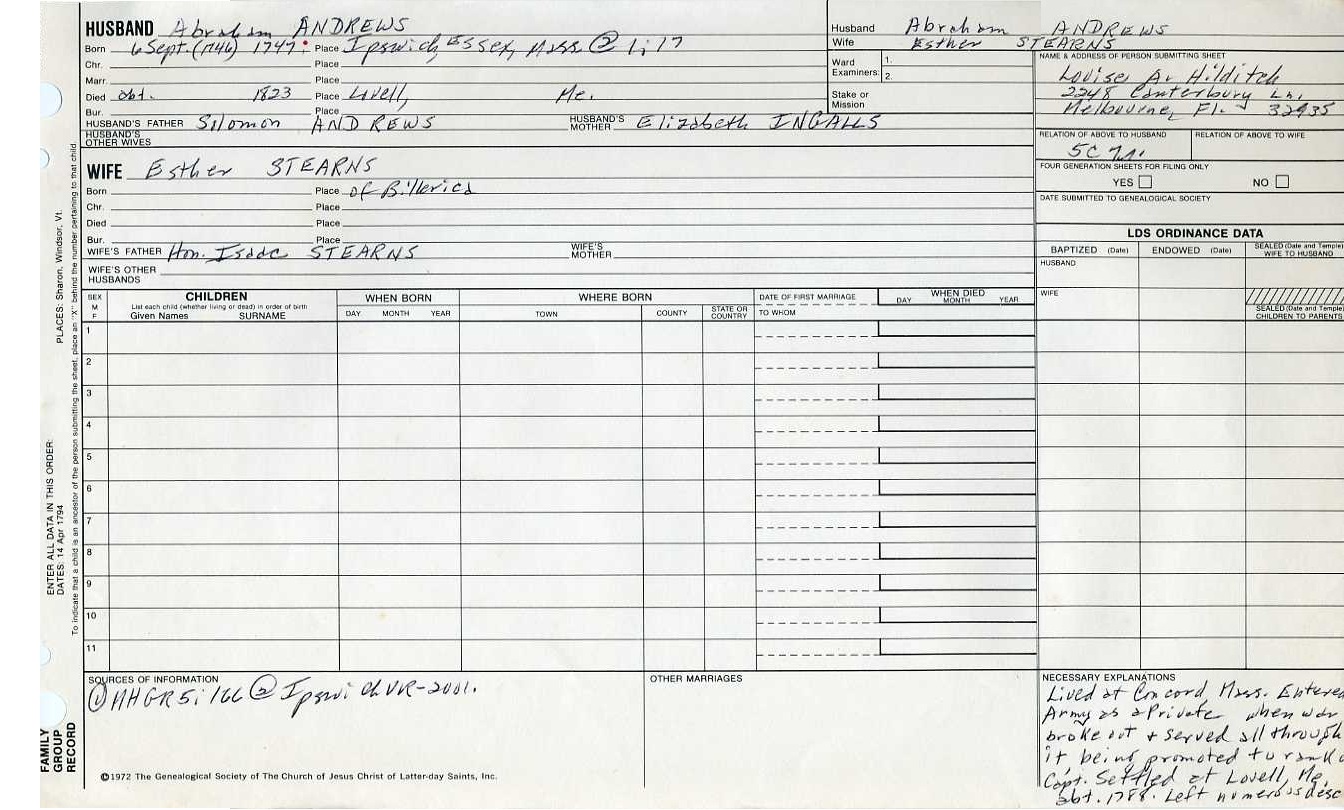 HUSBAND Abraham ANDREWS
Born 6 Sept. (1746) 1747. Place Ipswich, Essex, Mass @ 1;17
Chr. Place
Marr. Place
Died abt. 1823 Place Lovell, Me.
Bur. Place
HUSBAND'S FATHER Solomon ANDREWS HUSBAND'S MOTHER Elizabeth INGALLS
HUSBAND'S OTHER WIVES
Husband Abraham ANDREWS
Wife Esther STEARNS
Ward Examiners: 1.
2.
Stake or Mission
NAME & ADDRESS OF PERSON SUBMITTING SHEET
Louise A. Hilditch
2248 Canterbury Ln.
Melbourne, Fl. 32935
RELATION OF ABOVE TO HUSBAND RELATION OF ABOVE TO WIFE
FOUR GENERATION SHEETS FOR FILING ONLY
YES NO
DATE SUBMITTED TO GENEALOGICAL SOCIETY
WIFE Esther STEARNS
Born Place of Billerica
Chr. Place
Died Place
Bur. Place
WIFE'S FATHER Hon. Isaac STEARNS WIFE'S MOTHER
WIFE'S OTHER HUSBANDS
LDS ORDINANCE DATA
BAPTIZED (Date) ENDOWED (Date) SEALED (Date and Temple) WIFE TO HUSBAND
HUSBAND
WIFE
SEALED (Date and Temple) CHILDREN TO PARENTS
SEX M F
CHILDREN
List each child (whether living or dead) in order of birth
Given Names SURNAME
WHEN BORN
DAY MONTH YEAR
WHERE BORN
TOWN COUNTY STATE OR COUNTRY
DATE OF FIRST MARRIAGE
TO WHOM
WHEN DIED
DAY MONTH YEAR
1
2
3
4
5
6
7
8
9
10
11
SOURCES OF INFORMATION
① AHGR 5; 166 @ Ipswich VR-2001.
OTHER MARRIAGES
NECESSARY EXPLANATIONS
Lived at Concord, Mass. Entered
Army as a Private when war
broke out + served all through
it, being promoted to rank o
Capt. Settled at Lovell, Me,
abt. 1788. Left numerous desc
©1972 The Genealogical Society of The Church of Jesus Christ of Latter-day Saints, Inc.
FAMILY GROUP RECORD
ENTER ALL DATA IN THIS ORDER:
DATES: 14 Apr 1794
PLACES: Sharon, Windsor, Vt.
To indicate that a child is an ancestor of the person submitting the sheet, place an "X" behind the number pertaining to that child.